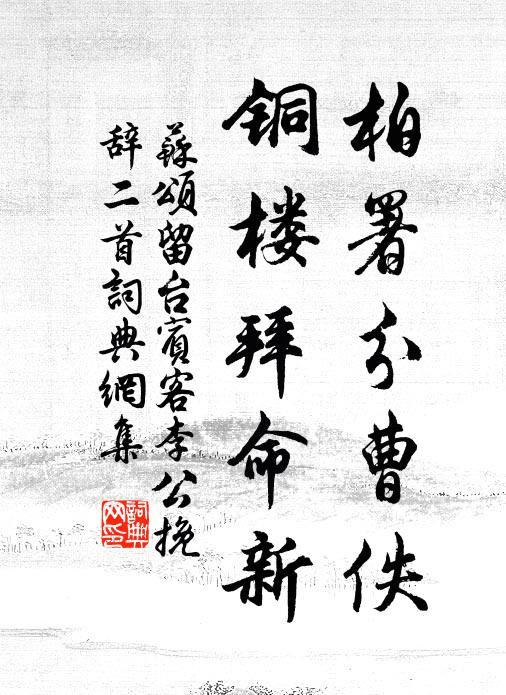 柏署分曹佚
铜楼拜命新
蘇頌留台賓客李公挽
辞二首詞典網集
詞典网印